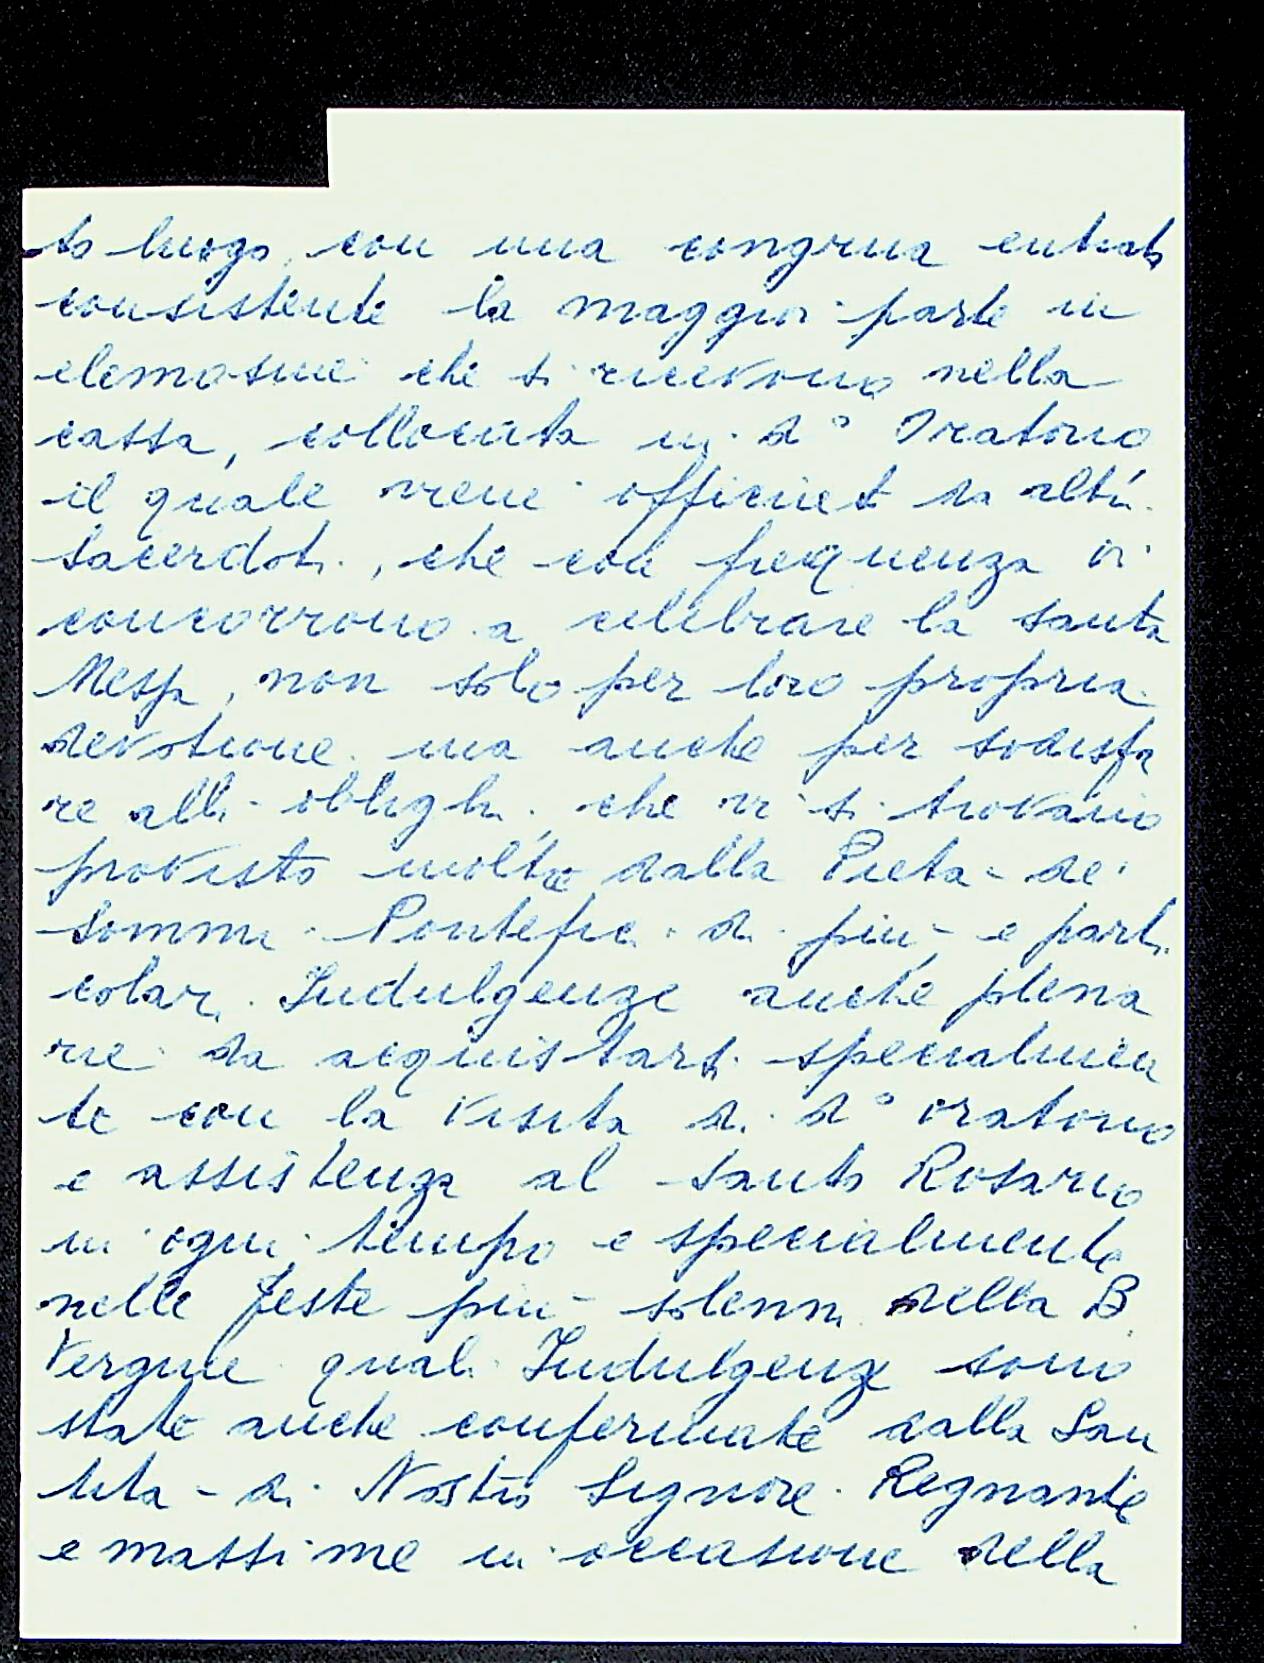 to luogo, con una congrua entrata
consistente la maggior parte in
elemosine che si ricevono nella
cassa, collocata in d° Oratorio
il quale viene officiato da altri
sacerdoti, che con frequenza vi
concorrono a celebrare la santa
Messa, non solo per loro propria
devotione ma anche per sodisfa
re alli oblighi, che vi si trovano
provisto molto dalla Pieta- de'
Sommi Pontefici di più e parti
colari Indulgenze anche plena
rie da acquistarsi specialmen
te con la visita di d° oratorio
e assistenza al santo Rosario
in ogni tempo e specialmente
nelle feste più solenni della B.
Vergine quali Indulgenze sono
state anche confermate dalla San
tita- di Nostro Signore Regnante
e massime in occasione della